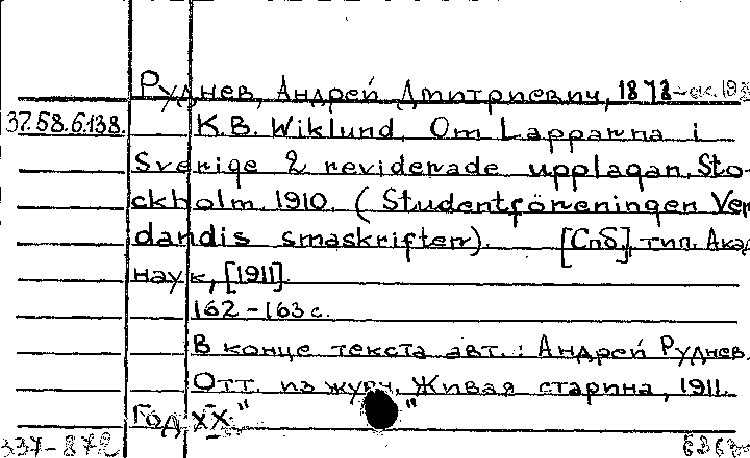 Руднев, Андрей Дмитриевич, 1878-
37.58.6.138. K.B. Wiklund, Om Lapparna i
Sverige 2 reviderade upplagan. Sto-
ckholm. 1910. (Studentföreningen Ver
dandis smaskrifter). [Спб], тип. Акад
наук, [1911].
162-163 с.
В конце текста авт.: Андрей Руднев.
Отт. из журн. Живая старина, 1911.
Год XX "
337-872